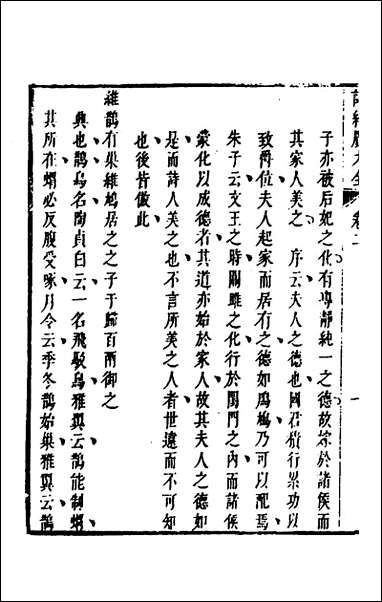 詩經廣大全 卷二 一
子亦被后妃之化有專靜純一之德故嫁於諸侯而
其家人美之 序云夫人之德也國君積行累功以
致爵位夫人起家而居有之德如鳲鳩乃可以配焉
朱子云文王之時關雎之化行於閨門之內而諸侯
蒙化以成德者其道亦始於家人故其夫人之德如
是而詩人美之也不言所美之人者世遠而不可知
也後皆倣此
維鵲有巢維鳩居之之子于歸百兩御之
興也鵲鳥名陶貞白云一名飛駁鳥雅翼云鵲能制蝟
其所在蝟必反腹受啄月令云季冬鵲始巢雅翼云鵲